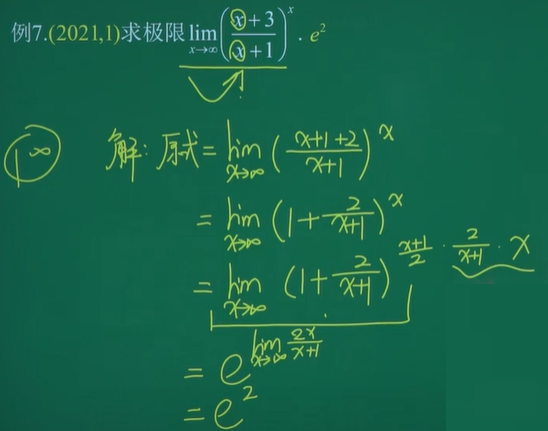 例7.(2021,1)求极限 lim x→∞ ((x+3)/(x+1))^x . e²
1^∞
解: 原式= lim x→∞ ((x+1+2)/(x+1))^x
= lim x→∞ (1+2/(x+1))^x
= lim x→∞ (1+2/(x+1))^((x+1)/2 · 2/(x+1) · x)
= e^(lim x→∞ 2x/(x+1))
= e²